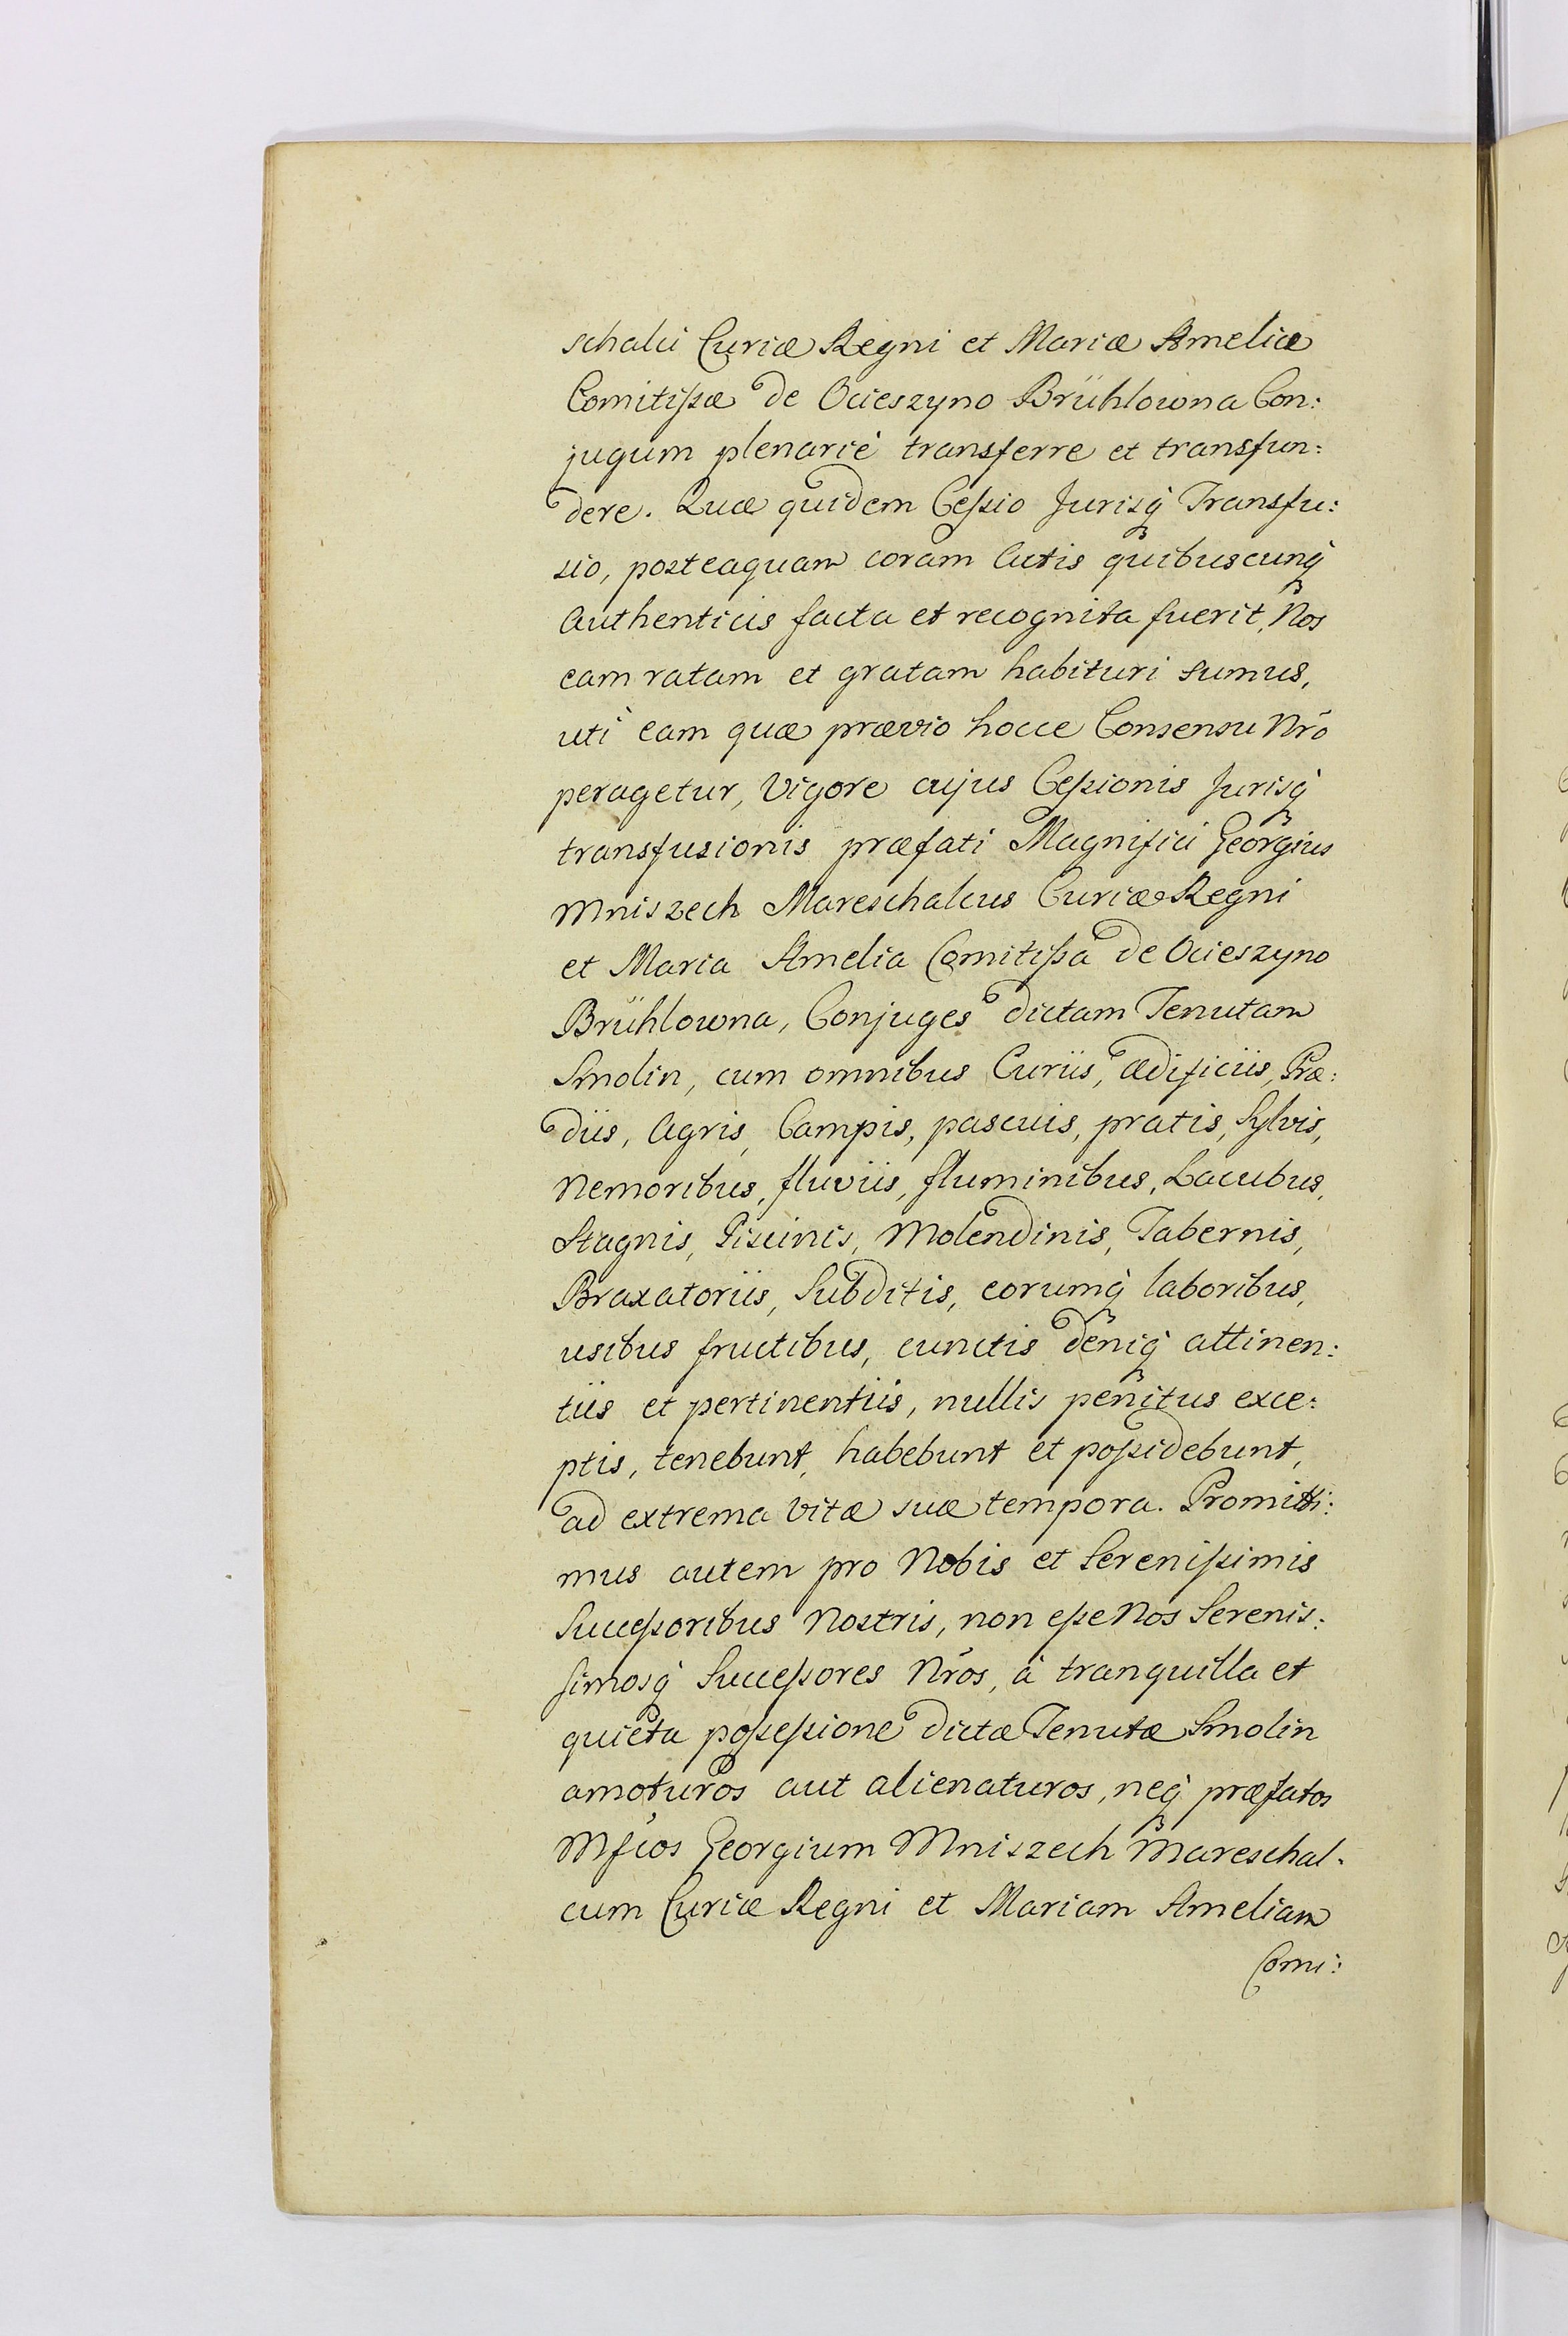 schalci Curiæ Regni et Mariæ Ameliæ
Comitißæ de Ocieszyno Brühlowna Con:
jugum plenariè transferre et transfun:
dere. Quæ quidem Ceßio Jurisq̀ Transfu:
sio, posteaquam coram Actis quibuscunq̀
Authenticis facta et recognita fuerit, Nos
eam ratam et gratam habituri sumus,
utì eam quæ prævio hocce Consensu Nr̃o
peragetur, Vigore cujus Ceßionis Jurisq̀
transfusionis præfati Magnifici Georgius
Mniszech Mareschalcus Curiæ Regni
et Maria Amelia Comitißa de Ocieszyno
Brühlowna, Conjuges dictam Tenutam
Smolin, cum omnibus Curiis, ædificiis, Præ:
diis, Agris, Campis, pascuis, pratis, Sylvis,
Nemoribus, fluviis, fluminibus, Lacubus,
Stagnis, Piscinis, Molendinis, Tabernis,
Braxatoriis, Subditis, eorumq̀ laboribus,
usibus fructibus, cunctis deniq̀ attinen:
tiis et pertinentiis, nullis penitus exce:
ptis, tenebunt, habebunt et poßidebunt,
ad extrema Vitæ suæ tempora. Promitti:
mus autem pro Nobis et Serenißimis
Succeßoribus Nostris, non eße Nos Serenis:
simosq̀ Succeßores Nr̃os, à tranquilla et
quieta poßeßione dictæ Tenutæ Smolin
amoturos aut alienaturos, neq̀ præfatos
Mf̃cos Georgium Mniszech Mareschal:
cum Curiæ Regni et Mariam Ameliam
Comi: